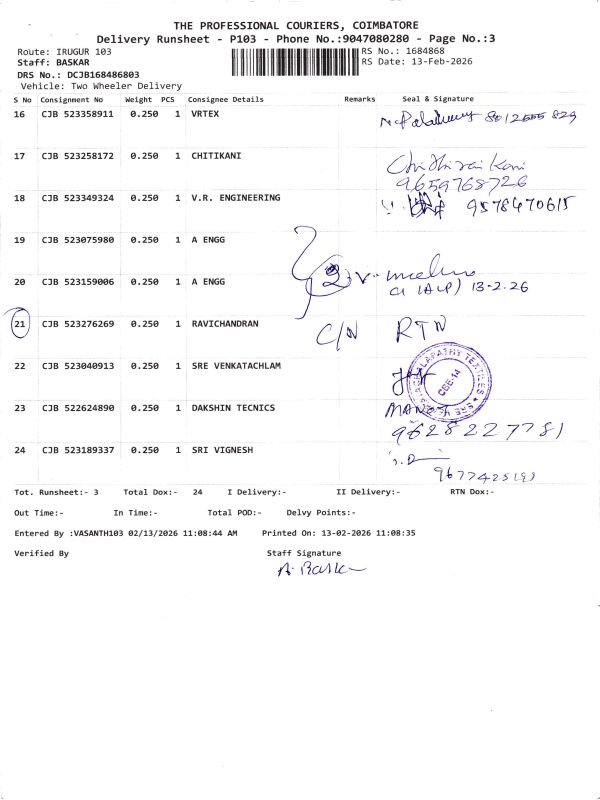 THE PROFESSIONAL COURIERS, COIMBATORE
Delivery Runsheet - P103 - Phone No.:9047080280 - Page No.:3
Route: IRUGUR 103 RS No.: 1684868
Staff: BASKAR RS Date: 13-Feb-2026
DRS No.: DCJB168486803
Vehicle: Two Wheeler Delivery
S No Consignment No Weight PCS Consignee Details Remarks Seal & Signature
16 CJB 523358911 0.250 1 VRTEX
17 CJB 523258172 0.250 1 CHITIKANI
9659768726
18 CJB 523349324 0.250 1 V.R. ENGINEERING 9578470615
19 CJB 523075980 0.250 1 A ENGG
20 CJB 523159006 0.250 1 A ENGG 2
13-2.26
21 CJB 523276269 0.250 1 RAVICHANDRAN C/N RTN
22 CJB 523040913 0.250 1 SRE VENKATACHLAM
CBE-14
23 CJB 522624890 0.250 1 DAKSHIN TECNICS MANOJ
9628227781
24 CJB 523189337 0.250 1 SRI VIGNESH
Tot. Runsheet:- 3 Total Dox:- 24 I Delivery:- II Delivery:- RTN Dox:-
Out Time:- In Time:- Total POD:- Delvy Points:-
Entered By :VASANTH103 02/13/2026 11:08:44 AM Printed On: 13-02-2026 11:08:35
Verified By Staff Signature
A. Baskar